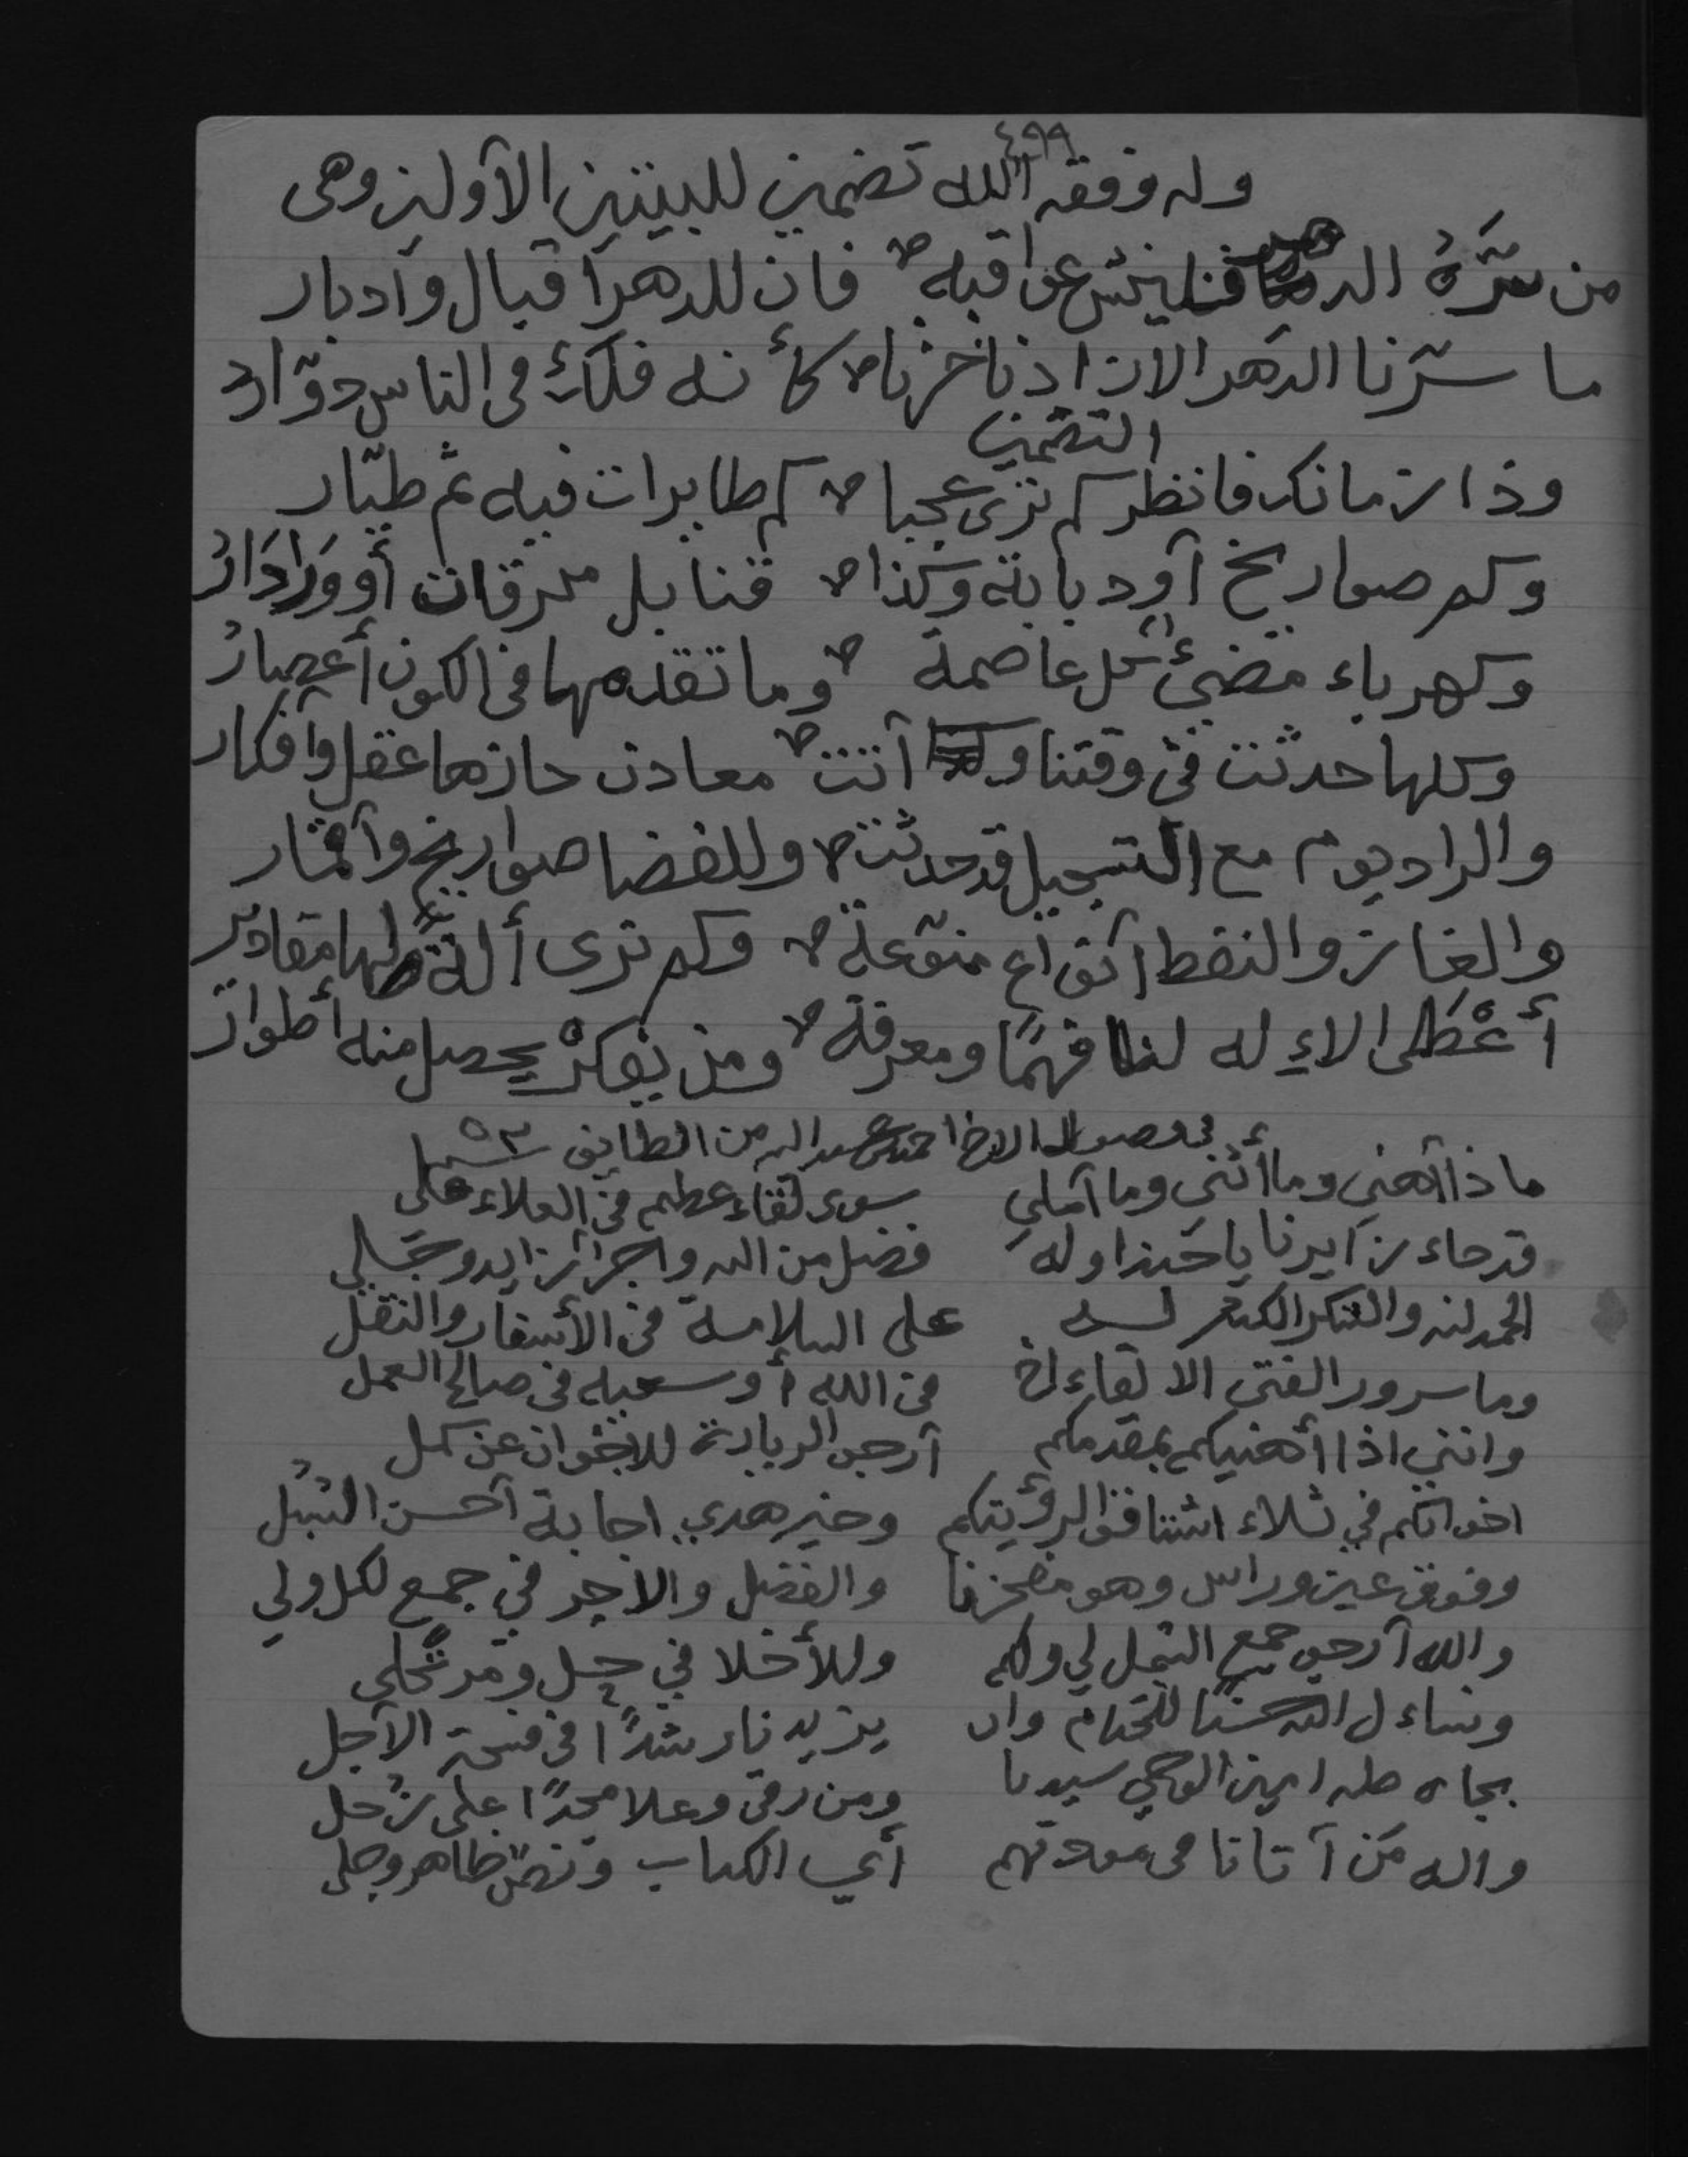 ٤٩٩
وله وفقه الله تضمين للبيتين الأولين وهى
من سَرَّهُ الدهر فليخش عواقبه فان للدهر اقبال وادبار
ما سرنا الدهر الا زاد ناخرنا كأنه فلك فى الناس دوّار
التضمين
وذا زمانك فانظر كم ترى عجبا كم طايرات فيه ثم طيّار
وكم صواريخ أو دبابة وكذا قنابل محرقات أو وَرَادَارُ
وكهرباء تضيئ كل عاصمة وما تقدمها فى الكون أعصارُ
وكلها حدثت في وقتنا و أتت معادن حازها عقل وافكار
والراديوم مع التسجيل قد حدثت وللفضا صواريخ وأقمار
والغاز والنفط أنواع منوّعة وكم ترى ألةً لها مقادير
أعْطى الاءِله لنا فهمًا ومعرفة ومن يفكرْ يحصل منه أطوارُ
فى وصول الاخ احمد عبد الله من الطايف
ماذا أهني وما أثني وما أملي سوى لقاء عظيم في العلاء علي
قد جاء زايرنا يا حبذا وله فضل من الله واجر زايد وجلي
الحمد لله والشكر الكثير لـه على السلامة في الأسفار والنقل
وما سرور الفتى الا لقاء اخ في الله أو سعيه في صالح العمل
وانني اذا أهنيكم بمقدمكم أرجو الزيارة للاخوان عن كمل
اخوانكم في ثلاء اشتاقوا لرؤيتكم وخير هدي اجابة أحسن السُبُل
وفوق عين وراس وهو مفخرنا والفضل والاجر في جمع لكل ولي
والله أرجو جمع الشمل لي ولكم وللأخلا في حِل ومرتحلي
ونساءل الله حسنًا للختام وان يزيدنا رشدًا في فسحة الأجل
بجاه طه امين الوحي سيدنا ومن رقى وعلا مجدًا على زُحل
واله مَن أتانا في مودتهم أي الكتاب ونصّ ظاهر وجلي